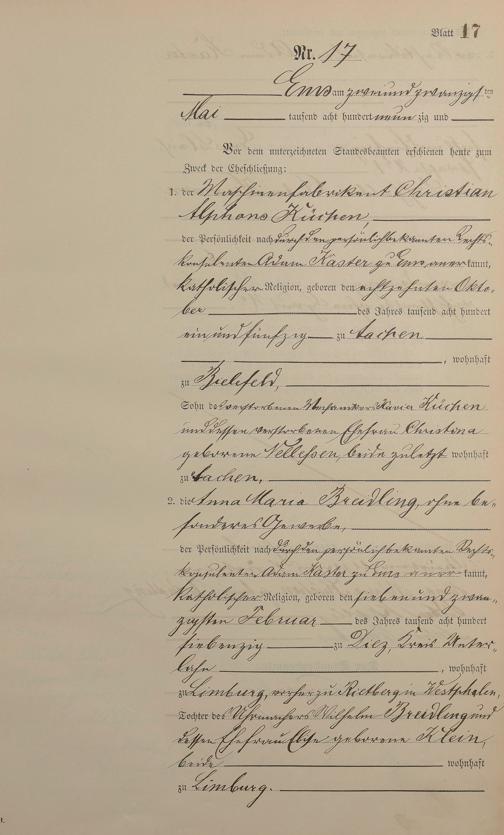 Blatt 17
Nr. 17
Ems am zweiundzwanzigsten
Mai tausend acht hundert neunzig und
Vor dem unterzeichneten Standesbeamten erschienen heute zum
Zweck der Eheschließung:
1. der Maschinenfabrikant Christian
Alphons Küchen,
der Persönlichkeit nach durch den persönlich bekannten Rechts-
konsulenten Adam Kaster zu Ems anerkannt,
katholischer Religion, geboren den achtzehnten Okto-
ber des Jahres tausend acht hundert
einundfünfzig zu Aachen
, wohnhaft
zu Bielefeld,
Sohn des verstorbenen Xavia Küchen
und dessen verstorbenen Ehefrau Christina
geborene Nellessen, beide zuletzt wohnhaft
zu Aachen,
2. die Anna Maria Breidling, ohne be-
sonderes Gewerbe,
der Persönlichkeit nach durch den persönlich bekannten Rechts-
konsulenten Adam Kaster zu Ems anerkannt,
katholischer Religion, geboren den siebenundzwan-
zigsten Februar des Jahres tausend acht hundert
siebenzig zu Diez, Kreis Unter-
lahn, wohnhaft
zu Limburg, vorher zu Rietberg in Westphalen,
Tochter des Uhrmachers Wilhelm Breidling und
dessen Ehefrau Elise geborene Klein,
beide wohnhaft
zu Limburg.